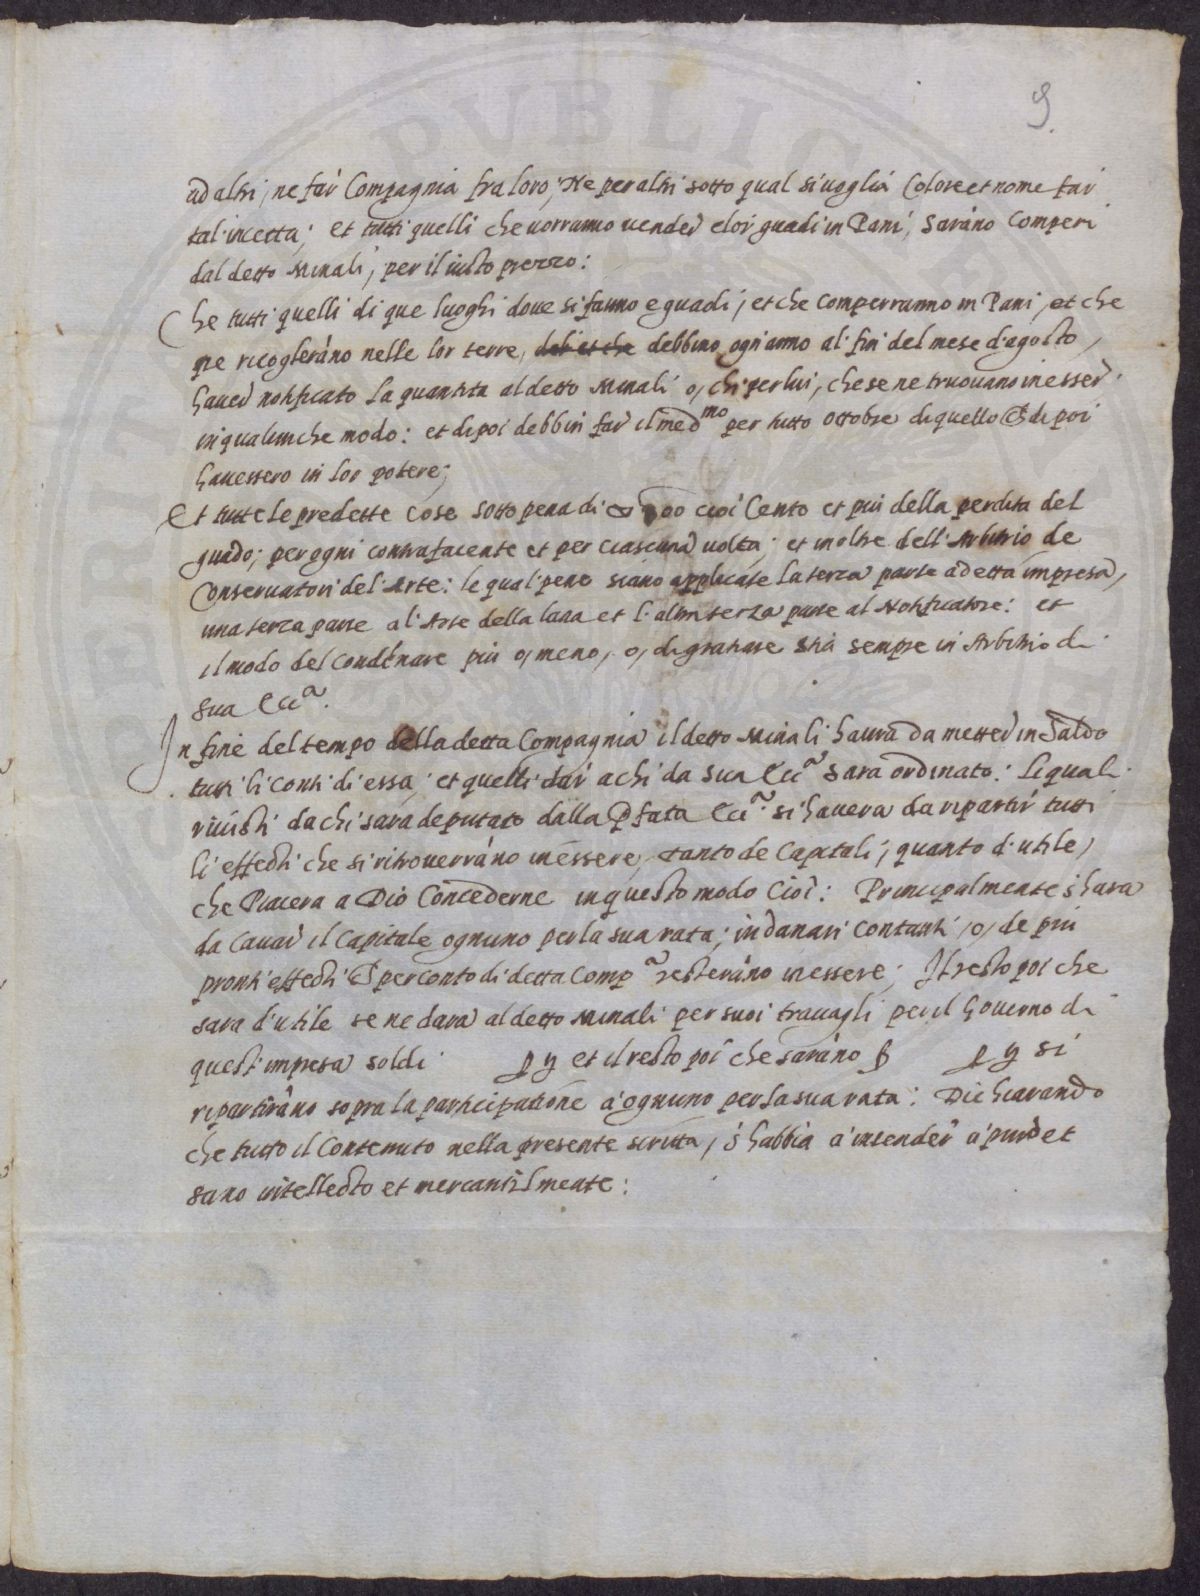 9.
ad altri, ne far Compagnia fra loro, Ne per altri sotto qual si voglia Colore et nome far
tal incetta; et tutti quelli che vorranno vender e lor guadi in Pani, sarāno Comperi
dal detto Minali, per il iusto prezzo:
Che tutti quelli di que luoghi dove si fanno e guadi, et che comperranno in Pani, et che
ne ricoglierāno nelle lor terre, debbino ogni anno al fin del mese d'agosto,
haver notificato la quantita al detto Minali o, chi per lui, che se ne truovano in esser
in qualunche modo: et di poi debbin far il med.mo per tutto Ottobre di quello di poi
havessero in lor potere;
Et tutte le predette cose sotto pena di 100 cioè Cento et più della perdita del
guado; per ogni contrafacente et per ciascuna volta; et inoltre dell'Arbitrio de
Conservatori del'Arte: le qual pene siano applicate la terza parte a detta impresa,
una terza parte al'Arte della lana et l'altra terza parte al Notificatore: et
il modo del condēnare più o, meno, o, di gravare stia sempre in Arbitrio di
sua Ecc.a.
In fine del tempo della detta Compagnia il detto Minali haura da metter in Saldo
tutti li conti di essa; et quelli dar a chi da sua Ecc.a sara ordinato: li quali
rivisti da chi sara deputato dalla Pfata Ecc.a si havera da repartir tutti
li effecti che si ritroverrāno in essere, tanto de Capitali, quanto d'utile,
che Piacera a Dio Concederne in questo modo Cioè: Principalmente s'hara
da Cavar il Capitale ognuno per la sua rata; in danari Contanti, o, de più
pronti effecti per conto di detta Comp.a resterāno in essere; Il resto poi che
sara d'utile se ne dara al detto Minali per suoi travagli per il Governo di
quest'impresa soldi p y et il resto poi che sarāno p y si
repartirāno sopra la participatione à ognuno per la sua rata: Dichiarando
che tutto il Contenuto nella presente scritta, s'habbia à intender à puro et
sano intellecto et mercantilmente: